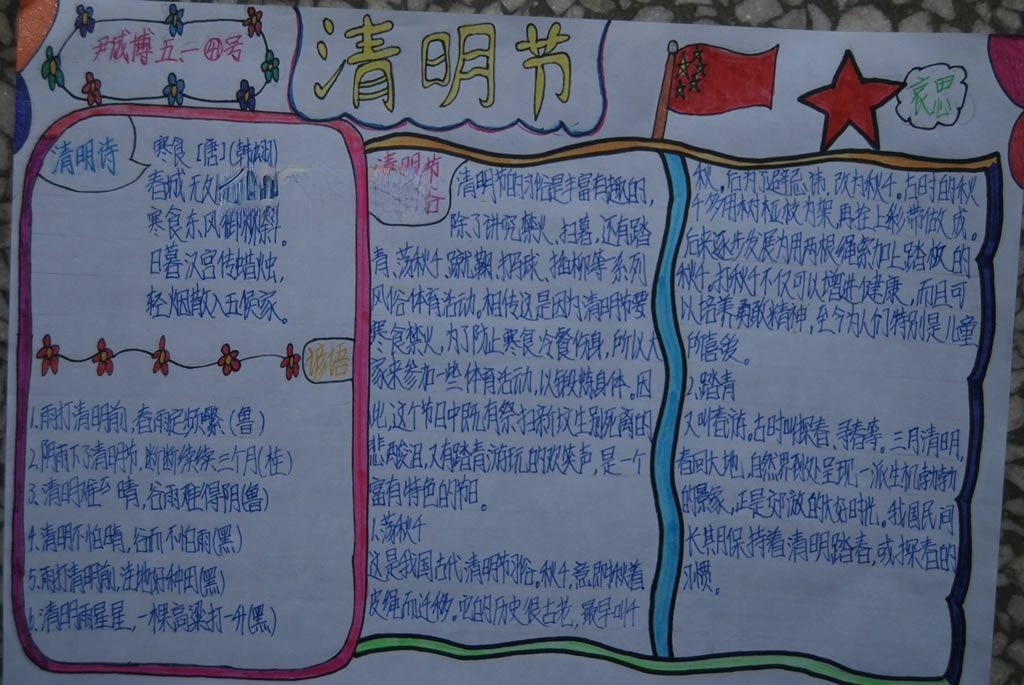 尹成博五、一㊹号
清明节
哀思
清明诗
寒食【唐】(韩翃)
春城无
寒食东风御柳斜。
日暮汉宫传蜡烛,
轻烟散入五侯家。
谚语
1.雨打清明前,春雨定频繁(鲁)
2.阴雨下了清明节,断断续续三个月(桂)
3.清明难晴,谷雨难得阴(鲁)
4.清明不怕晴,谷雨不怕雨(黑)
5.雨打清明前,洼地好种田(黑)
6.清明雨星星,一棵高粱打一升(黑)
清明节
清明节的习俗是丰富有趣的,
除了讲究禁火、扫墓,还有踏
青、荡秋千、蹴鞠、打马球、插柳等系列
风俗体育活动。相传这是因为清明节要
寒食禁火,为了防止寒食冷餐伤身,所以大
家来参加一些体育活动,以锻炼身体。因
此,这个节日中既有祭扫新坟生别死离的
悲酸泪,又有踏青游玩的欢笑声,是一个
富有特色的节日。
1.荡秋千
这是我国古代清明节习俗。秋千,意即揪着
皮绳而迁移。它的历史很古老,最早叫千
秋。后为了避忌讳,改为秋千。古时的秋
千多用树桠枝为架,再拴上彩带做成。
后来逐步发展为用两根绳索加上踏板的
秋千。打秋千不仅可以增进健康,而且可
以培养勇敢精神,至今为人们特别是儿童
所喜爱。
2.踏青
又叫春游。古时叫探春、寻春等。三月清明,
春回大地,自然界到处呈现一派生机勃勃
的景象,正是郊游的大好时光。我国民间
长期保持着清明踏春,或探春的
习惯。